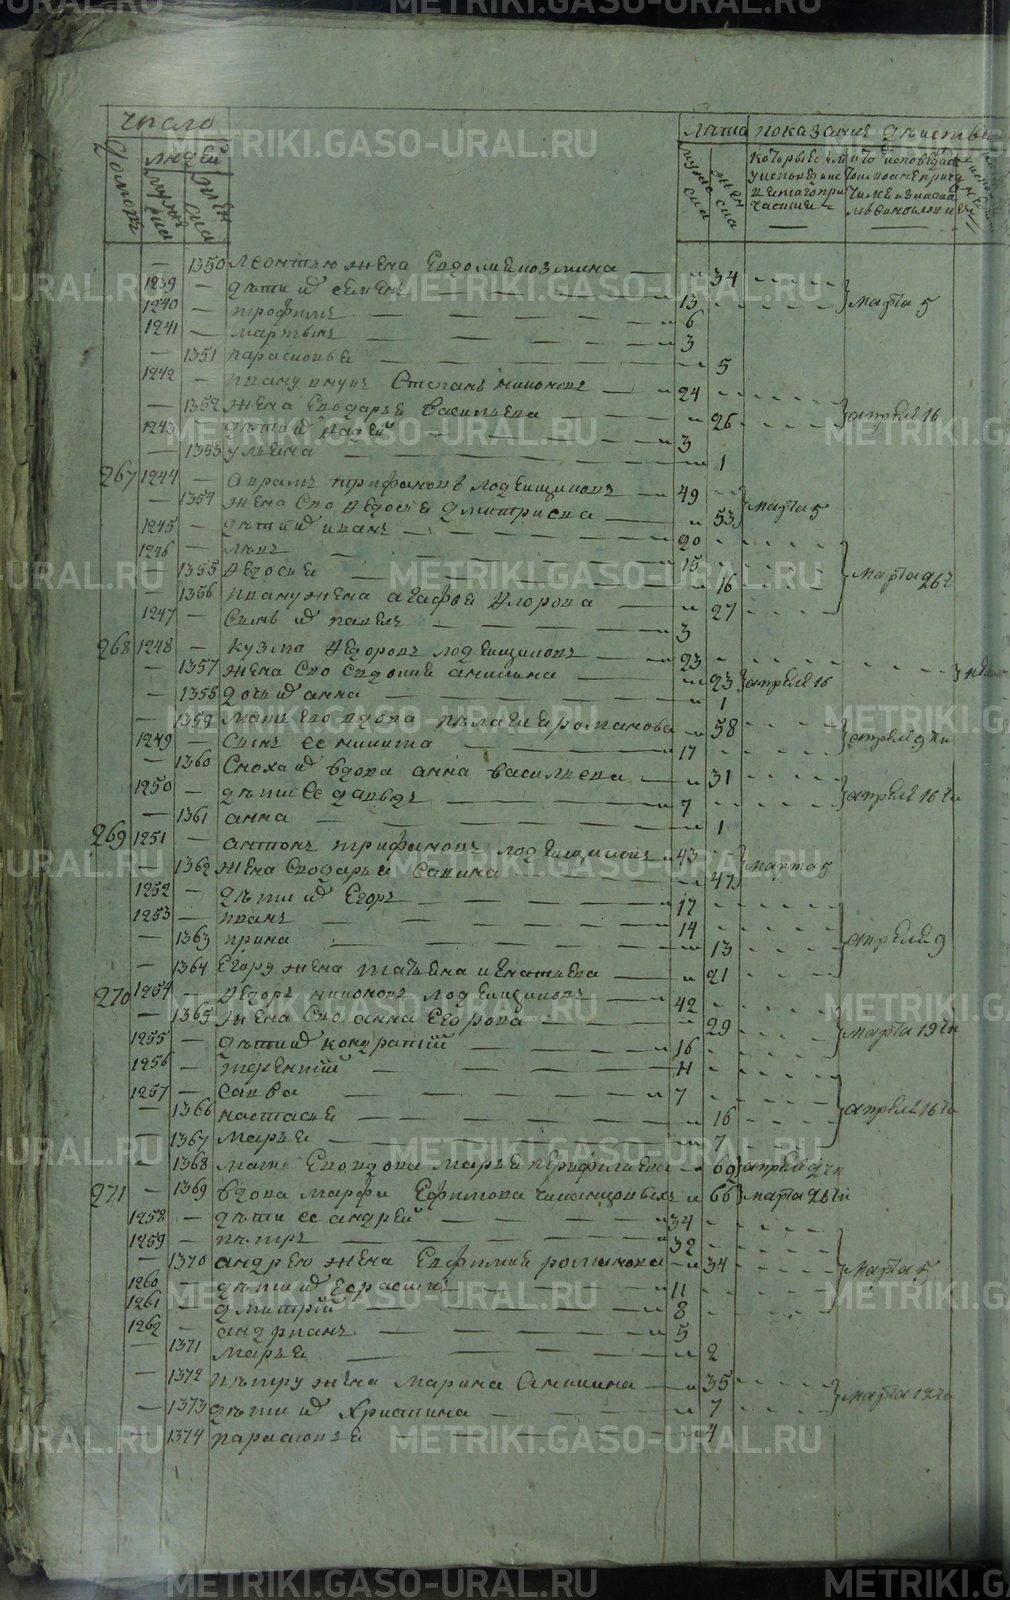 число
домовъ
людей
мужеска
женска
лѣта
показание дѣйства
мужеска
женска
1350 Леонтью жена Евдокия Козмина — 34
1239 дѣти их Семенъ — 13
марта 5
1240 трофимъ — 6
1241 мартынъ — 3
1351 парасковья — 5
1242 Ивану внукъ Степанъ никоновъ — 24
1352 жена Ево дарья васильева — 26
апреля 16
1243 дѣти их Фадей — 3
1353 ульяна — 1
267 1244 Аврамъ трифановъ лодейщиковъ — 49
1354 жена Ево федосья дмитриева — 53
марта 5
1245 дѣти их иванъ — 20
1246 левъ — 15
1355 федосья — 16
марта 26 ч
1356 Ивану жена агафья флорова — 27
1247 Сынъ их павелъ — 3
268 1248 кузма федоровъ лодейщиковъ — 23
1357 жена Ево Евдокия аникина — 23
апреля 16
1358 дочь их анна — 1
1359 мать ево вдова пелагея романова — 58
1249 Сынъ ее никита — 17
апреля 9 чи
1360 Сноха их вдова анна васильева — 31
1250 дѣти ее давыдъ — 7
апреля 16 чи
1361 анна — 1
269 1251 антонъ трифановъ лодейщиковъ — 43
1362 жена Ево дарья Савина — 47
марта 5
1252 дѣти их Егоръ — 17
1253 иванъ — 14
1363 ирина — 13
апреля 9
1364 Егору жена татьяна игнатьева — 21
270 1254 федоръ никоновъ лодейщиковъ — 42
1365 жена Ево анна Егорова — 29
марта 19 чи
1255 дѣти их кондратій — 16
1256 терентій — 11
1257 Савва — 7
1366 настасья — 16
апреля 16 чи
1367 Марья — 7
1368 мать Ево вдова марья перфильева — 69
апреля 9 чи
271 1369 вдова марфа Ефимова — 66
марта 26 чи
1258 дѣти ее андрей — 34
1259 петръ — 32
1370 андрею жена Евфимия романова — 34
марта 5
1260 дѣти их Герасимъ — 11
1261 дмитрій — 8
1262 андрианъ — 5
1371 марья — 2
1372 петру жена марина Аникина — 35
марта 12 чи
1373 дѣти их Христина — 7
1374 парасковья — 4
METRIKI.GASO-URAL.RU